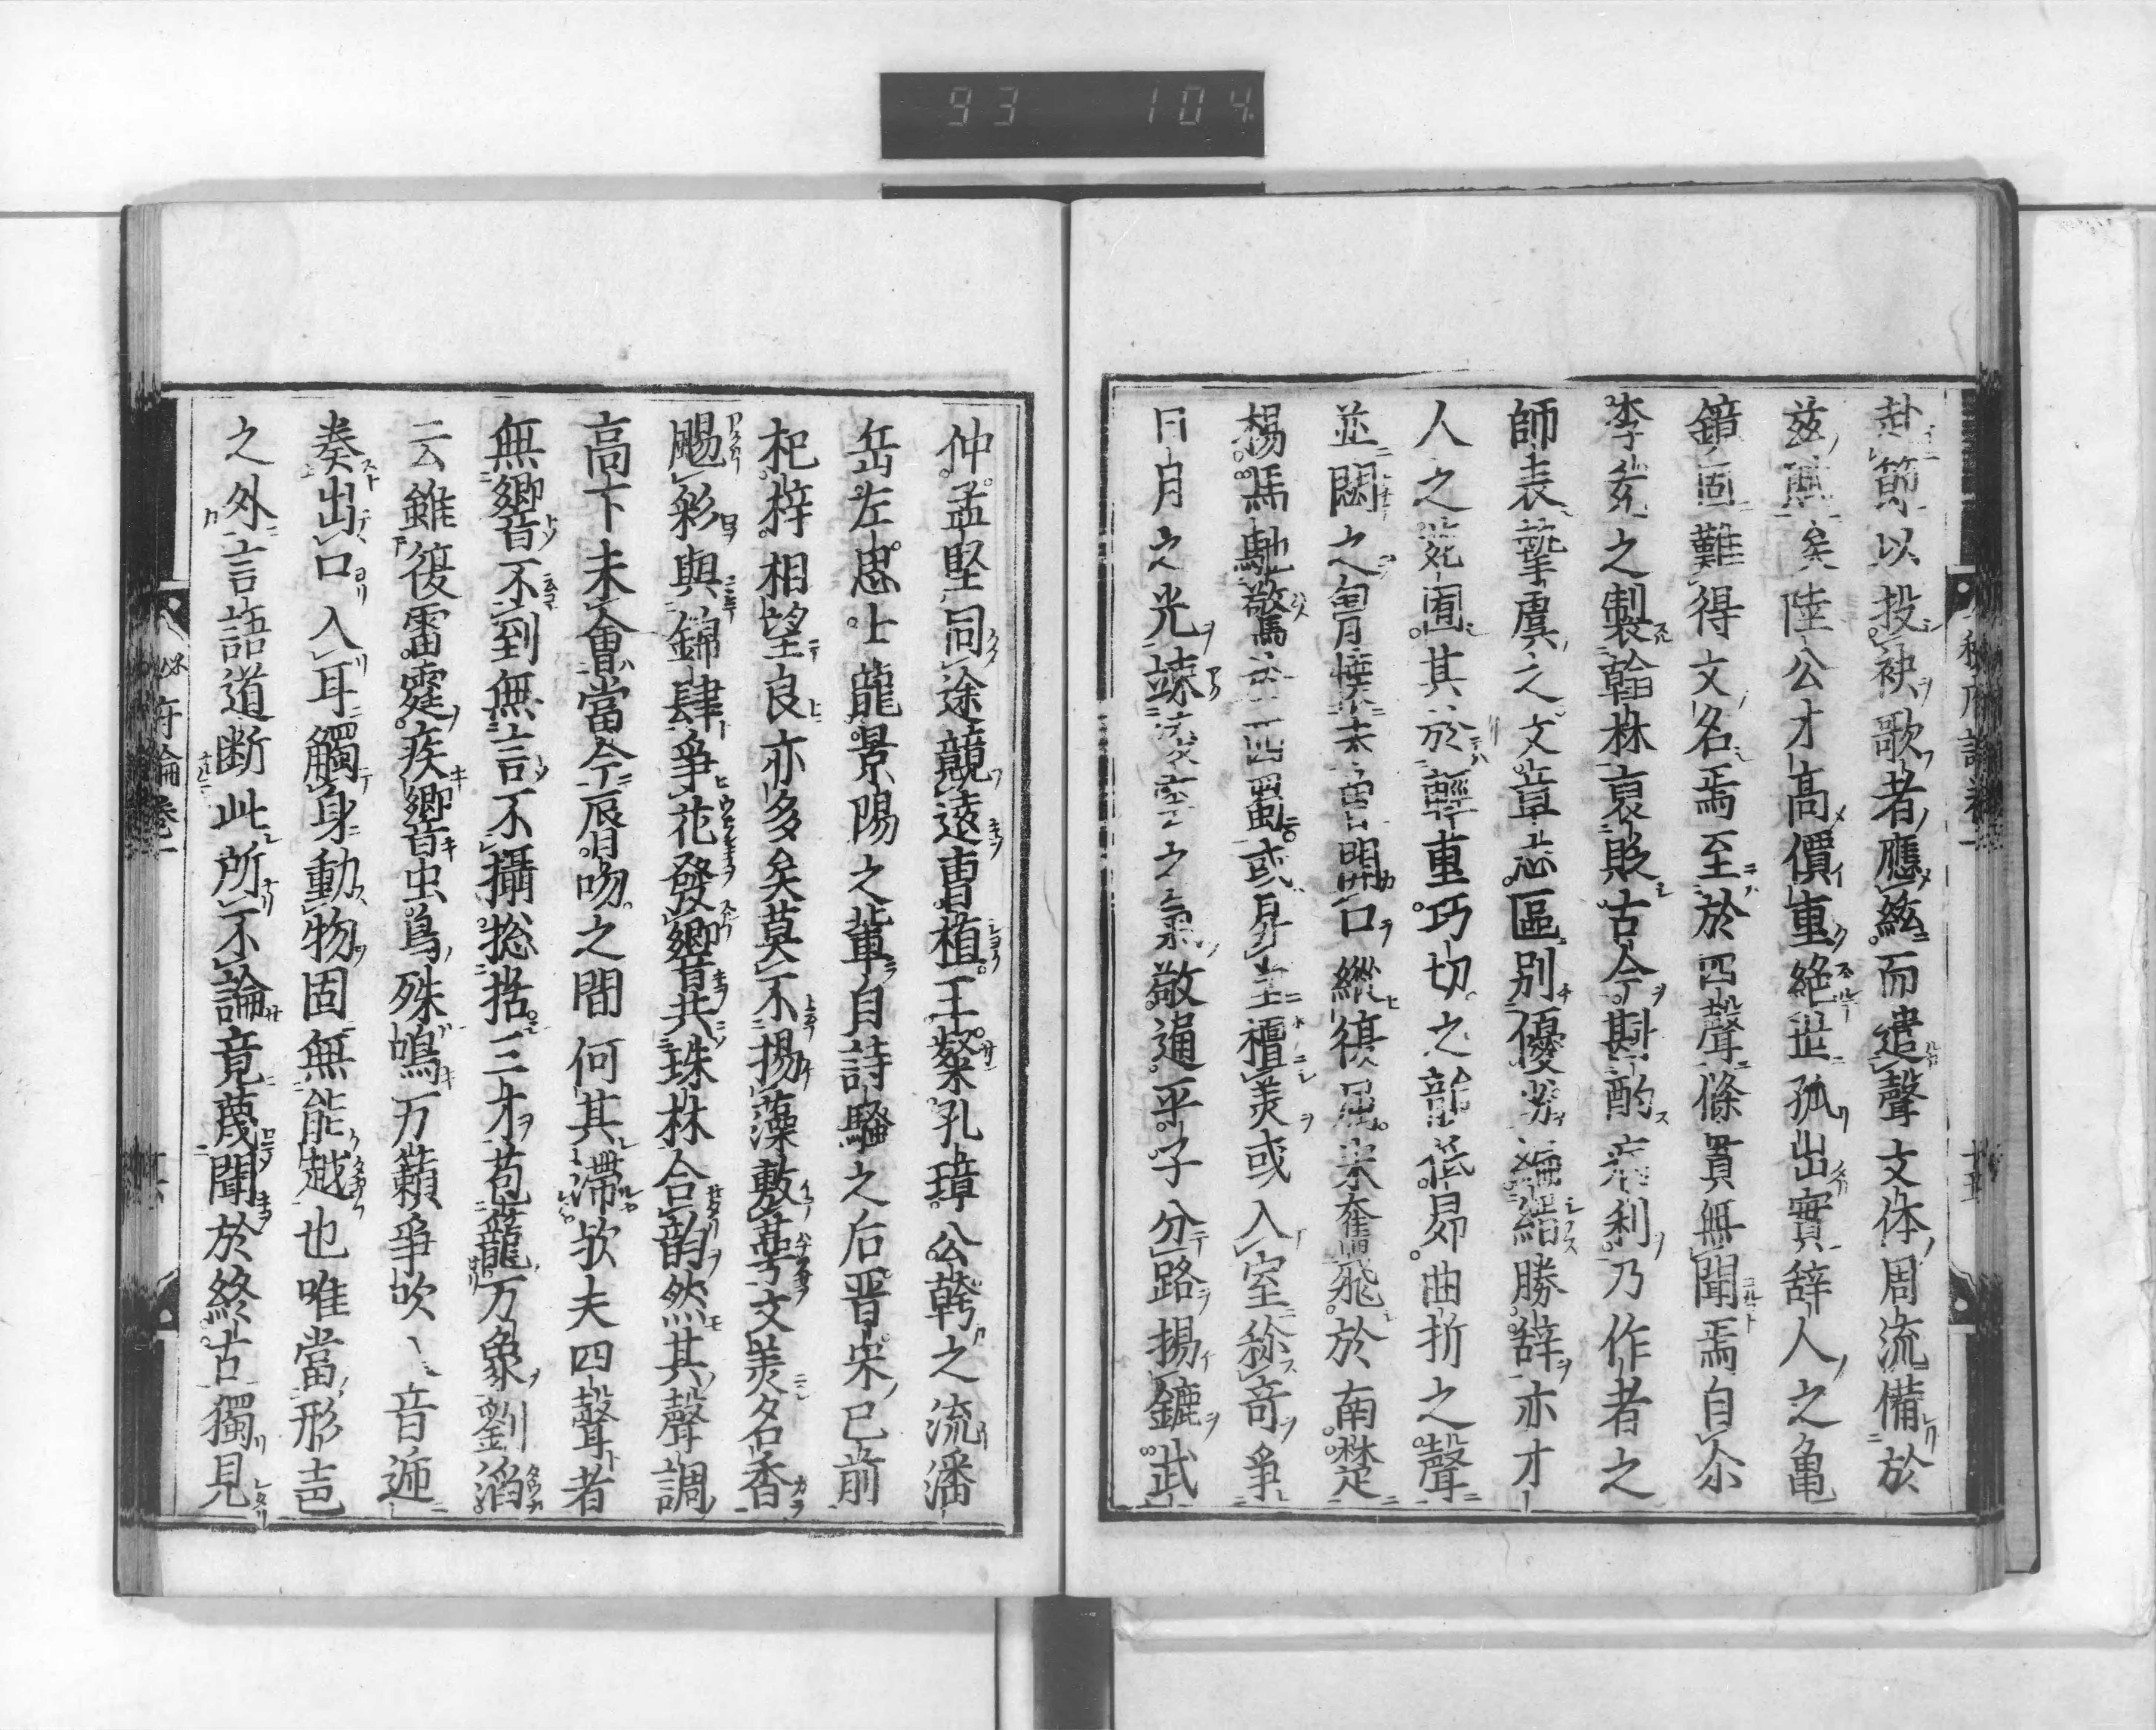 93 104.
赴節以投袂歌者應絃而遣聲文体周流備於
茲無矣陸公才高價重絶世孤出實辞人之亀
鏡固難得文名焉至於四聲條貫無聞焉自尓
李充之製翰林褒貶古今斟酌病利乃作者之
師表摯虞之文章志區別優劣編緝勝辞亦才
人之苑囿其於輕重巧切之韻低昂曲折之聲
並閟之胷懐未曽開口縱復屈宋奮飛於南楚
楊馬馳騖於西蜀或身堂檀美或入室称竒爭
日月之光竦凌雲之氣敬通平子分路揚鑣武
仲孟堅同途競遠曹植王粲孔璋公幹之流潘
岳左思士龍景陽之輩自詩騒之后晋宋已前
杞梓相望良亦多矣莫不揚藻敷萼文美名香
颺彩與錦肆爭花發響共珠林合韵然其聲調
高下未會當今唇吻之間何其滞欤夫四聲者
無響不到無言不攝捴括三才苞蘢万象劉滔
云雖復雷霆疾響虫鳥殊鳴万籟爭吹、、音逓
奏出口入耳觸身動物固無能越也唯當形声
之外言語道断此所不論竟蔑聞於終古獨見
秘府論巻一